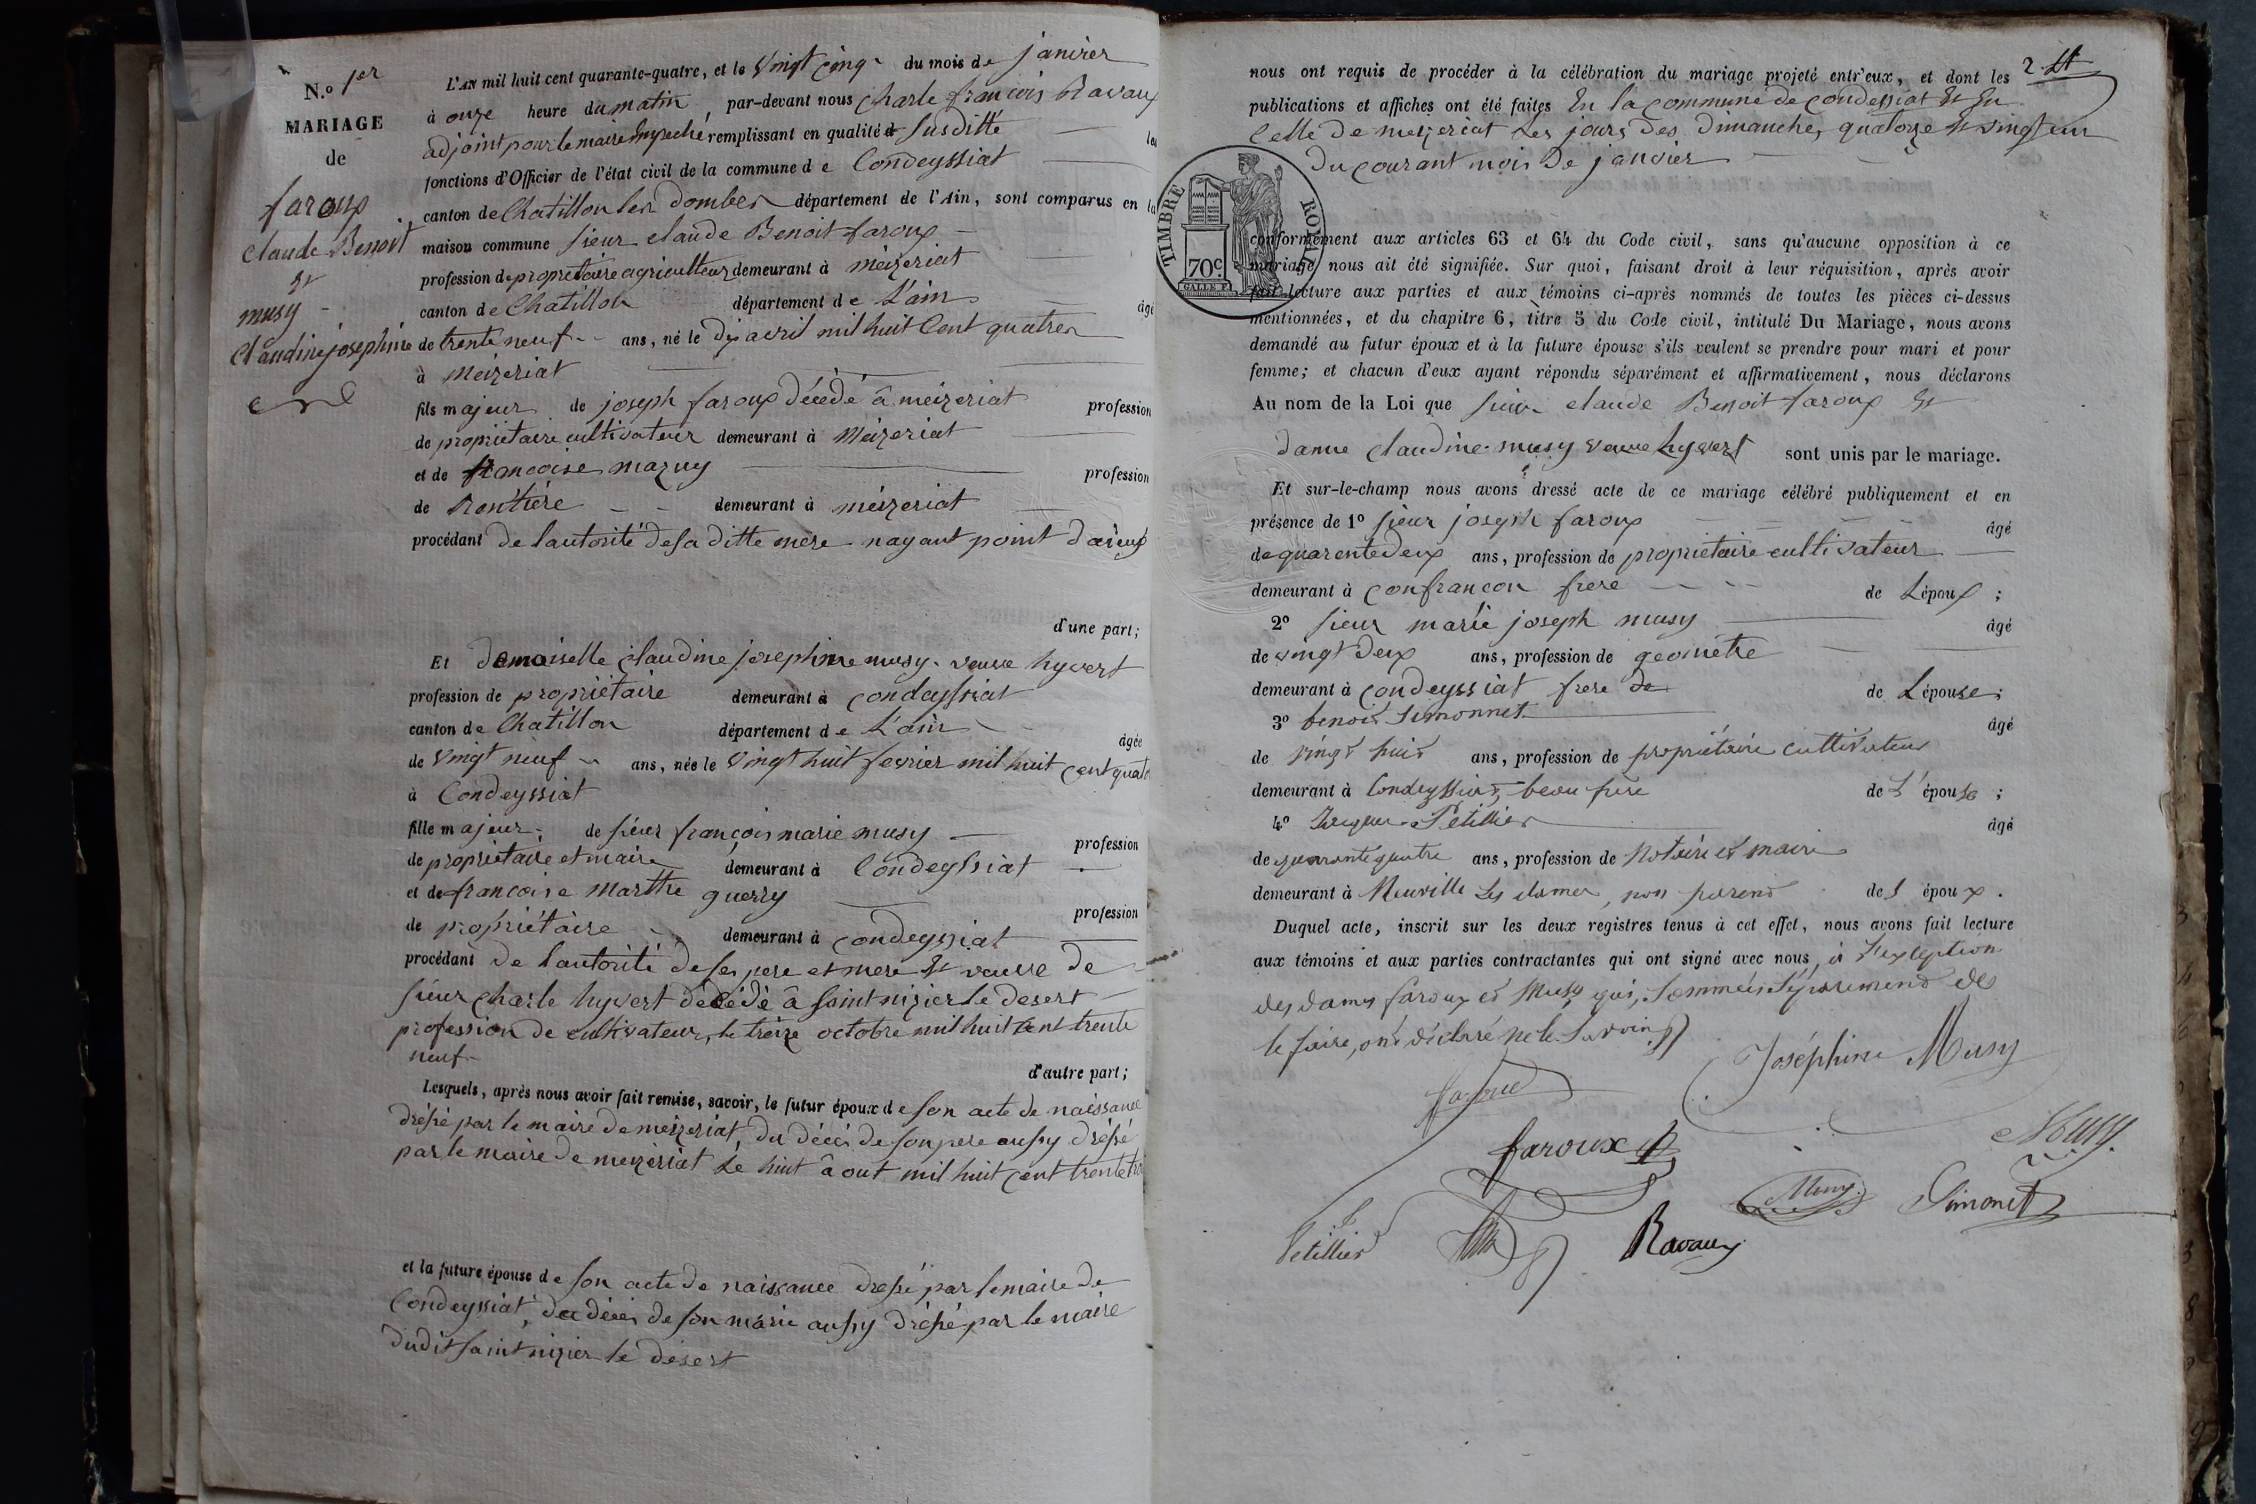 N.º 1er
MARIAGE
de
faroux
claude Benoit
Et
musy
Claudine joséphine
L'AN mil huit cent quarante-quatre, et le Vingt cinq du mois de janvier
à onze heure du matin par-devant nous Charle françois Ravaux
adjoint pour le maire Empeché remplissant en qualité d Susditte les
fonctions d'Officier de l'état civil de la commune de Condeyssiat
canton de Chatillon les dombes département de l'Ain, sont comparus en la
maison commune sieur claude Benoit faroux
profession de propriétaire agriculteur demeurant à Meizeriat
canton de Chatillon département de L'ain âgé
de trente neuf ans, né le dix avril mil huit Cent quatre
à Meizeriat
fils majeur de joseph faroux décédé à meizeriat profession
de propriétaire cultivateur demeurant à Meizeriat
et de françoise maruy profession
de Rentière demeurant à méizeriat
procédant de lautorité de sa ditte mère nayant point daieux
d'une part;
Et demoiselle Claudine josephine musy veuve hyvert
profession de propriétaire demeurant à Condeyssiat
canton de Chatillon département de L'ain âgée
de Vingt neuf ans, née le Vingt huit fevrier mil huit cent quato
à Condeyssiat
fille majeur de sieur françois marie musy profession
de propriétaire et maire demeurant à Condeyssiat
et de françoise Marthe guerry profession
de propriétaire demeurant à condeyssiat
procédant de lautorité de ses pere et mere Et veuve de
sieur Charle hyvert décédé à Saint nizier le desert
profession de cultivateur, le treize octobre mil huit Cent trente
neuf
d'autre part;
Lesquels, après nous avoir fait remise, savoir, le futur époux de son acte de naissance
dréssé par le maire de meizeriat, du décès de son pere aussy dréssé
par le maire de meizériat Le huit août mil huit cent trente tro
et la future épouse de son acte de naissance dressé par le maire de
Condeyssiat, du décès de son marie aussy dréssé par le maire
dudit Saint nizier le desert
2
nous ont requis de procéder à la célébration du mariage projeté entr'eux, et dont les
publications et affiches ont été faites En la commune de condeyssiat Et En
Celle de meizeriat les jours des dimanches quatorze et vingt un
du courant mois de janvier
TIMBRE ROYAL
70c.
GALLE F.
conformément aux articles 63 et 64 du Code civil, sans qu'aucune opposition à ce
mariage nous ait été signifiée. Sur quoi, faisant droit à leur réquisition, après avoir
fait lecture aux parties et aux témoins ci-après nommés de toutes les pièces ci-dessus
mentionnées, et du chapitre 6, titre 5 du Code civil, intitulé Du Mariage, nous avons
demandé au futur époux et à la future épouse s'ils veulent se prendre pour mari et pour
femme; et chacun d'eux ayant répondu séparément et affirmativement, nous déclarons
Au nom de la Loi que sieur claude Benoit faroux Et
dame claudine musy veuve hyvert sont unis par le mariage.
Et sur-le-champ nous avons dressé acte de ce mariage célébré publiquement et en
présence de 1º sieur joseph faroux âgé
de quarente deux ans, profession de propriétaire cultivateur
demeurant à Confrançon frere de Lépoux ;
2º sieur marie joseph musy âgé
de vingt deux ans, profession de géomètre
demeurant à Condeyssiat frere de de Lépouse ;
3º benoit Simonnet âgé
de vingt huit ans, profession de propriétaire cultivateur
demeurant à Condeyssiat, beau frère de l'épouse ;
4º Petillier âgé
de quarante quatre ans, profession de Notaire et maire
demeurant à Neuville les dames, non parent de l époux .
Duquel acte, inscrit sur les deux registres tenus à cet effet, nous avons fait lecture
aux témoins et aux parties contractantes qui ont signé avec nous, à l'exception
des dames faroux et Musy qui, sommées séparement de
le faire, ont déclaré ne le savoir
Joséphine Musy
faroux
Musy
Musy
Simonet
Petillier
Ravaux